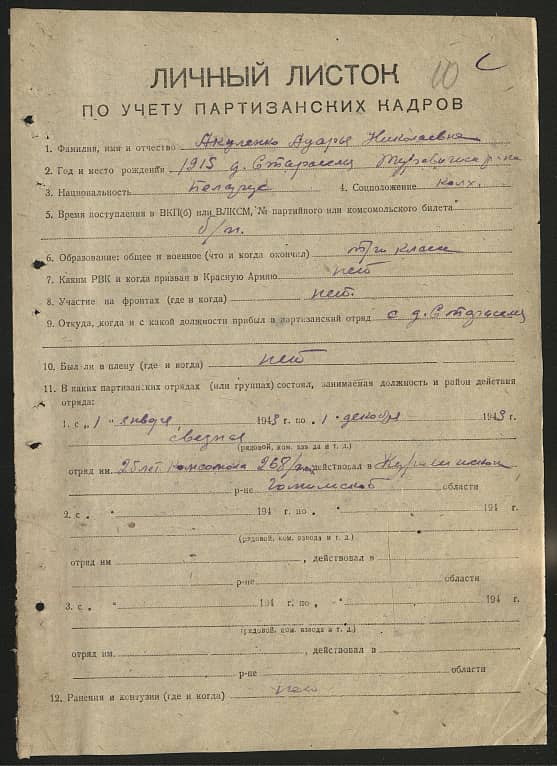 10 С
ЛИЧНЫЙ ЛИСТОК
ПО УЧЕТУ ПАРТИЗАНСКИХ КАДРОВ
1. Фамилия, имя и отчество Акуленко Дарья Николаевна
2. Год и место рождения 1915 д. р-на
3. Национальность 4. Соцположение колх.
5. Время поступления в ВКП(б) или ВЛКСМ, № партийного или комсомольского билета
б/п.
6. Образование: общее и военное (что и когда окончил) три класс
7. Каким РВК и когда призван в Красную Армию нет
8. Участие на фронтах (где и когда) нет.
9. Откуда, когда и с какой должности прибыл в партизанский отряд с д.
10. Был ли в плену (где и когда) нет
11. В каких партизанских отрядах (или группах) состоял, занимаемая должность и район действия
отряда:
1. с „1" января 1943 г. по „1" декабря 1943 г.
связная
(рядовой, ком. взвода и т. д.)
отряд им. 25 лет Комсомола 268/ действовал в
р-не Гомельской области
2. с „ " 194 г. по „ " 194 г.
(рядовой, ком. взвода и т. д.)
отряд им , действовал в
р-не области
3. с „ " 194 г. по „ " 194 г.
(рядовой, ком. взвода и т. д.)
отряд им. , действовал в
р-не области
12. Ранения и контузии (где и когда) нет